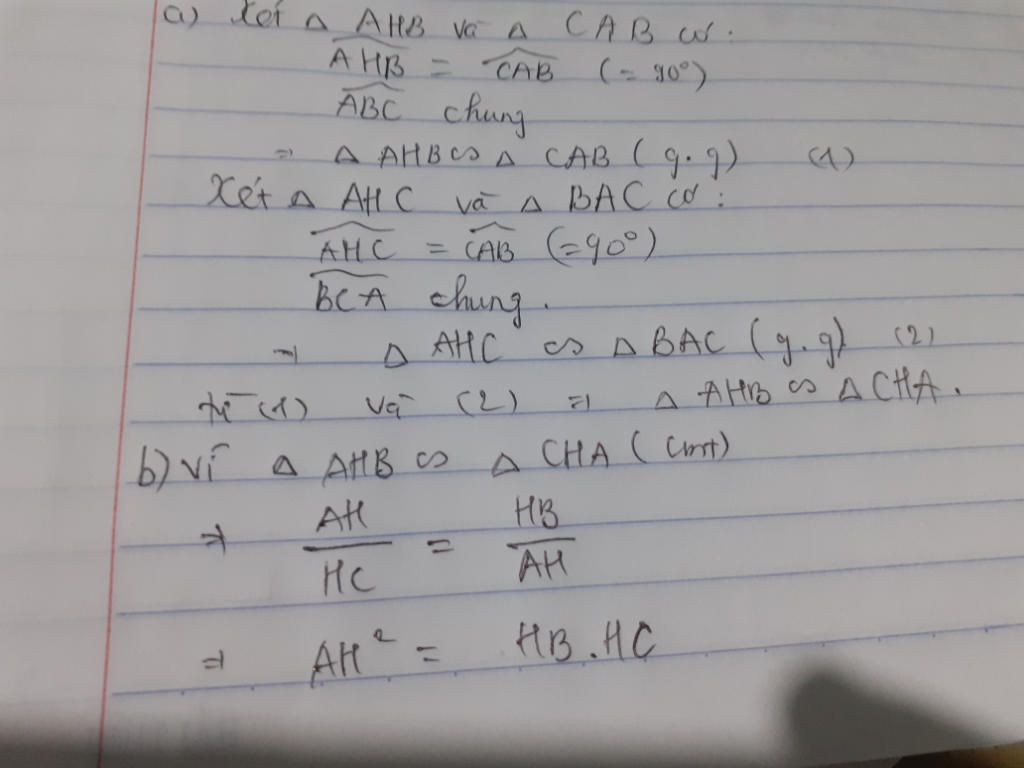 a) Xét △ AHB và △ CAB có:
$\widehat{AHB}$ = $\widehat{CAB}$ (= 90°)
$\widehat{ABC}$ chung
⇒ △ AHB ∽ △ CAB (g.g) (1)
Xét △ AHC và △ BAC có:
$\widehat{AHC}$ = $\widehat{CAB}$ (=90°)
$\widehat{BCA}$ chung.
⇒ △ AHC ∽ △ BAC (g.g) (2)
từ (1) và (2) ⇒ △ AHB ∽ △ CHA.
b) vì △ AHB ∽ △ CHA (cmt)
⇒ $\frac{AH}{HC}$ = $\frac{HB}{AH}$
⇒ AH² = HB.HC